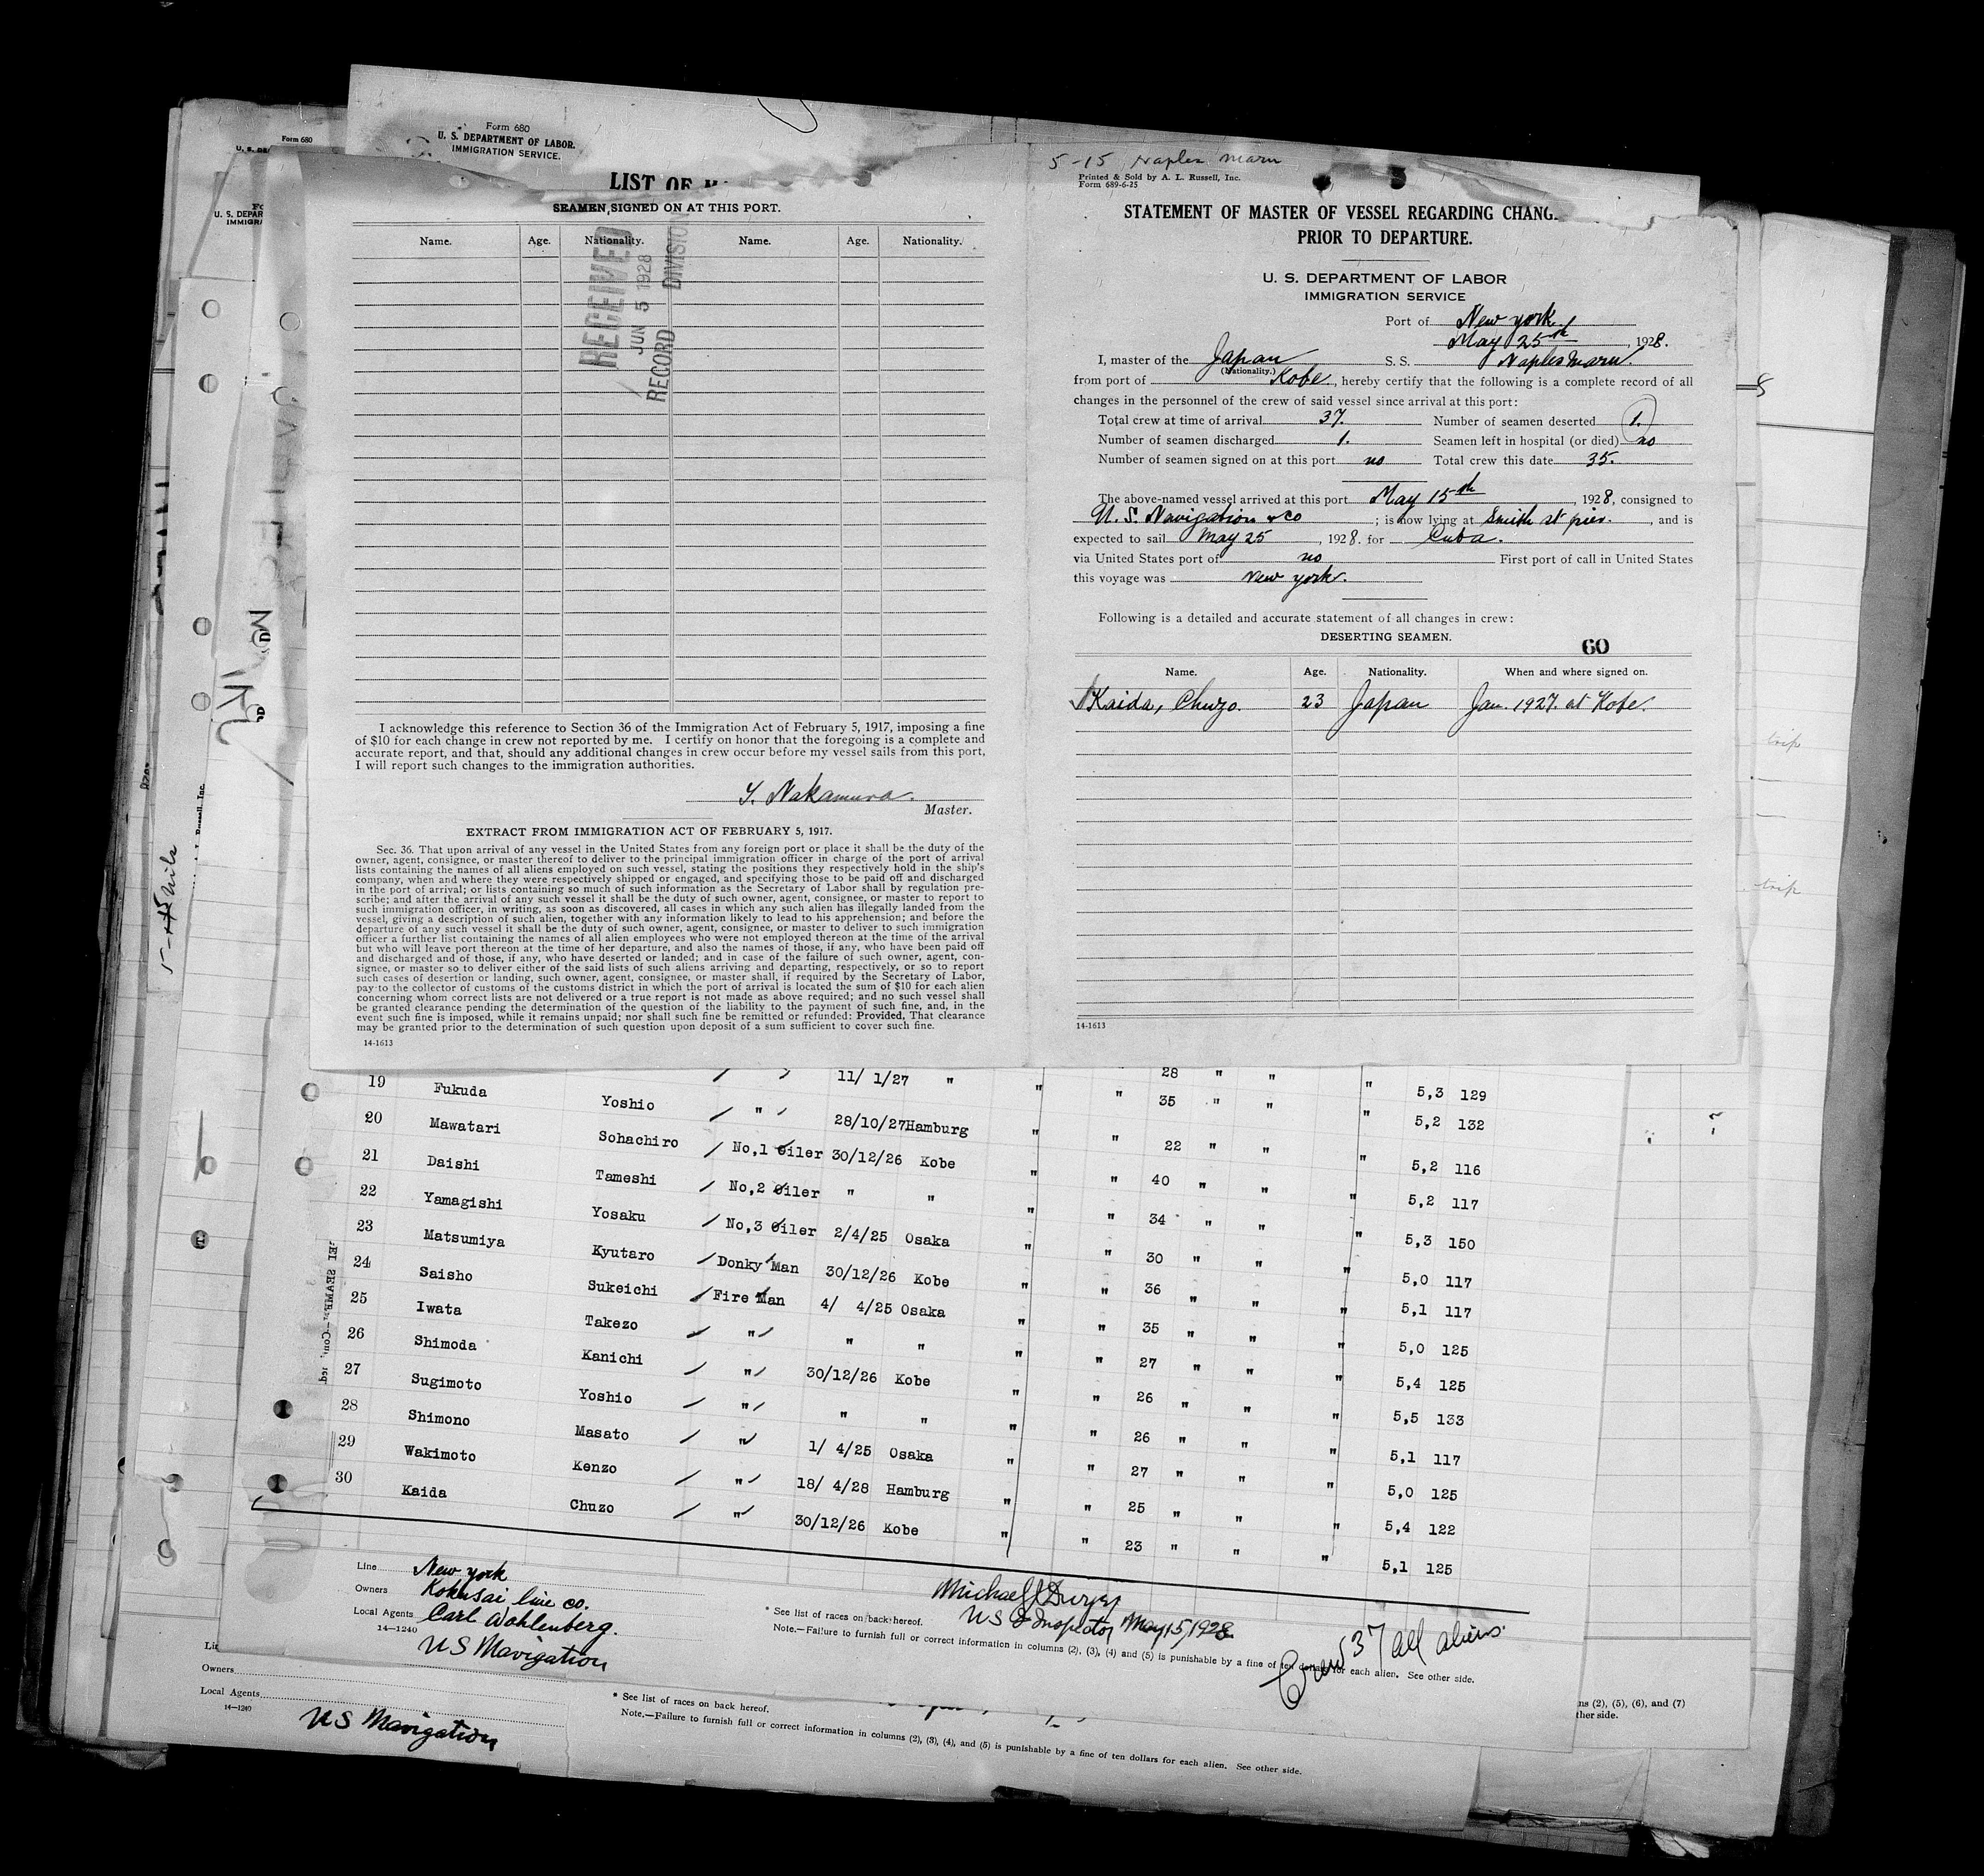 Form 680
U. S. DEPARTMENT OF LABOR.
IMMIGRATION SERVICE.
Form 680
LIST OF
SEAMEN, SIGNED ON AT THIS PORT.
Name. Age. Nationality. Name. Age. Nationality.
RECEIVED
JUN 5 1928
RECORD DIVISION
I acknowledge this reference to Section 36 of the Immigration Act of February 5, 1917, imposing a fine
of $10 for each change in crew not reported by me. I certify on honor that the foregoing is a complete and
accurate report, and that, should any additional changes in crew occur before my vessel sails from this port,
I will report such changes to the immigration authorities.
Y. Nakamura.
Master.
EXTRACT FROM IMMIGRATION ACT OF FEBRUARY 5, 1917.
Sec. 36. That upon arrival of any vessel in the United States from any foreign port or place it shall be the duty of the
owner, agent, consignee, or master thereof to deliver to the principal immigration officer in charge of the port of arrival
lists containing the names of all aliens employed on such vessel, stating the positions they respectively hold in the ship's
company, when and where they were respectively shipped or engaged, and specifying those to be paid off and discharged
in the port of arrival; or lists containing so much of such information as the Secretary of Labor shall by regulation pre-
scribe; and after the arrival of any such vessel it shall be the duty of such owner, agent, consignee, or master to report to
such immigration officer, in writing, as soon as discovered, all cases in which any such alien has illegally landed from the
vessel, giving a description of such alien, together with any information likely to lead to his apprehension; and before the
departure of any such vessel it shall be the duty of such owner, agent, consignee, or master to deliver to such immigration
officer a further list containing the names of all alien employees who were not employed thereon at the time of the arrival
but who will leave port thereon at the time of her departure, and also the names of those, if any, who have been paid off
and discharged and of those, if any, who have deserted or landed; and in case of the failure of such owner, agent, con-
signee, or master so to deliver either of the said lists of such aliens arriving and departing, respectively, or so to report
such cases of desertion or landing, such owner, agent, consignee, or master shall, if required by the Secretary of Labor,
pay to the collector of customs of the customs district in which the port of arrival is located the sum of $10 for each alien
concerning whom correct lists are not delivered or a true report is not made as above required; and no such vessel shall
be granted clearance pending the determination of the question of the liability to the payment of such fine, and, in the
event such fine is imposed, while it remains unpaid; nor shall such fine be remitted or refunded: Provided, That clearance
may be granted prior to the determination of such question upon deposit of a sum sufficient to cover such fine.
14-1613
5-15 Naples Maru
Printed & Sold by A. L. Russell, Inc.
Form 689-6-25
STATEMENT OF MASTER OF VESSEL REGARDING CHANG
PRIOR TO DEPARTURE.
U. S. DEPARTMENT OF LABOR
IMMIGRATION SERVICE
Port of New york
May 25th, 1928.
I, master of the Japan S. S. Naples Maru.
(Nationality.)
from port of Kobe, hereby certify that the following is a complete record of all
changes in the personnel of the crew of said vessel since arrival at this port:
Total crew at time of arrival 37. Number of seamen deserted 1.
Number of seamen discharged 1. Seamen left in hospital (or died) no
Number of seamen signed on at this port no Total crew this date 35.
The above-named vessel arrived at this port May 15th, 1928, consigned to
U. S. Navigation & co; is now lying at Smith st pier., and is
expected to sail May 25, 1928. for Cuba.
via United States port of no First port of call in United States
this voyage was new york.
Following is a detailed and accurate statement of all changes in crew:
DESERTING SEAMEN.
60
Name. Age. Nationality. When and where signed on.
Kaida, Chuzo. 23 Japan Jan. 1927. at Kobe.
14-1613
trip
trip
19 Fukuda Yoshio " 11/ 1/27 " " " 28 " " " 5,3 129
20 Mawatari Sohachiro " 28/10/27 Hamburg " " 35 " " " 5,2 132
21 Daishi Tameshi No,1 oiler 30/12/26 Kobe " " 22 " " " 5,2 116
22 Yamagishi Yosaku No,2 oiler " " " " 40 " " " 5,2 117
23 Matsumiya Kyutaro No,3 oiler 2/4/25 Osaka " " 34 " " " 5,3 150
24 Saisho Sukeichi Donky Man 30/12/26 Kobe " " 30 " " " 5,0 117
25 Iwata Takezo Fire Man 4/ 4/25 Osaka " " 36 " " " 5,1 117
26 Shimoda Kanichi " " " " " 35 " " " 5,0 125
27 Sugimoto Yoshio " 30/12/26 Kobe " " 27 " " " 5,4 125
28 Shimono Masato " " " " " 26 " " " 5,5 133
29 Wakimoto Kenzo " 1/ 4/25 Osaka " " 26 " " " 5,1 117
30 Kaida Chuzo " 18/ 4/28 Hamburg " " 27 " " " 5,0 125
" 30/12/26 Kobe " " 25 " " " 5,4 122
23 " " " 5,1 125
Line New york
Owners Kokusai line co.
Local Agents Carl Wohlenberg.
14—1240
US Navigation
Michael J Dwyer
US I Inspector May 15, 1928
* See list of races on back hereof.
Note.—Failure to furnish full or correct information in columns (2), (3), (4) and (5) is punishable by a fine of ten dollars for each alien. See other side.
Crew 37 all aliens.
Owners
Local Agents
14—1240
US Navigation
* See list of races on back hereof.
Note.—Failure to furnish full or correct information in columns (2), (3), (4), and (5) is punishable by a fine of ten dollars for each alien. See other side.
ns (2), (5), (6), and (7)
ther side.